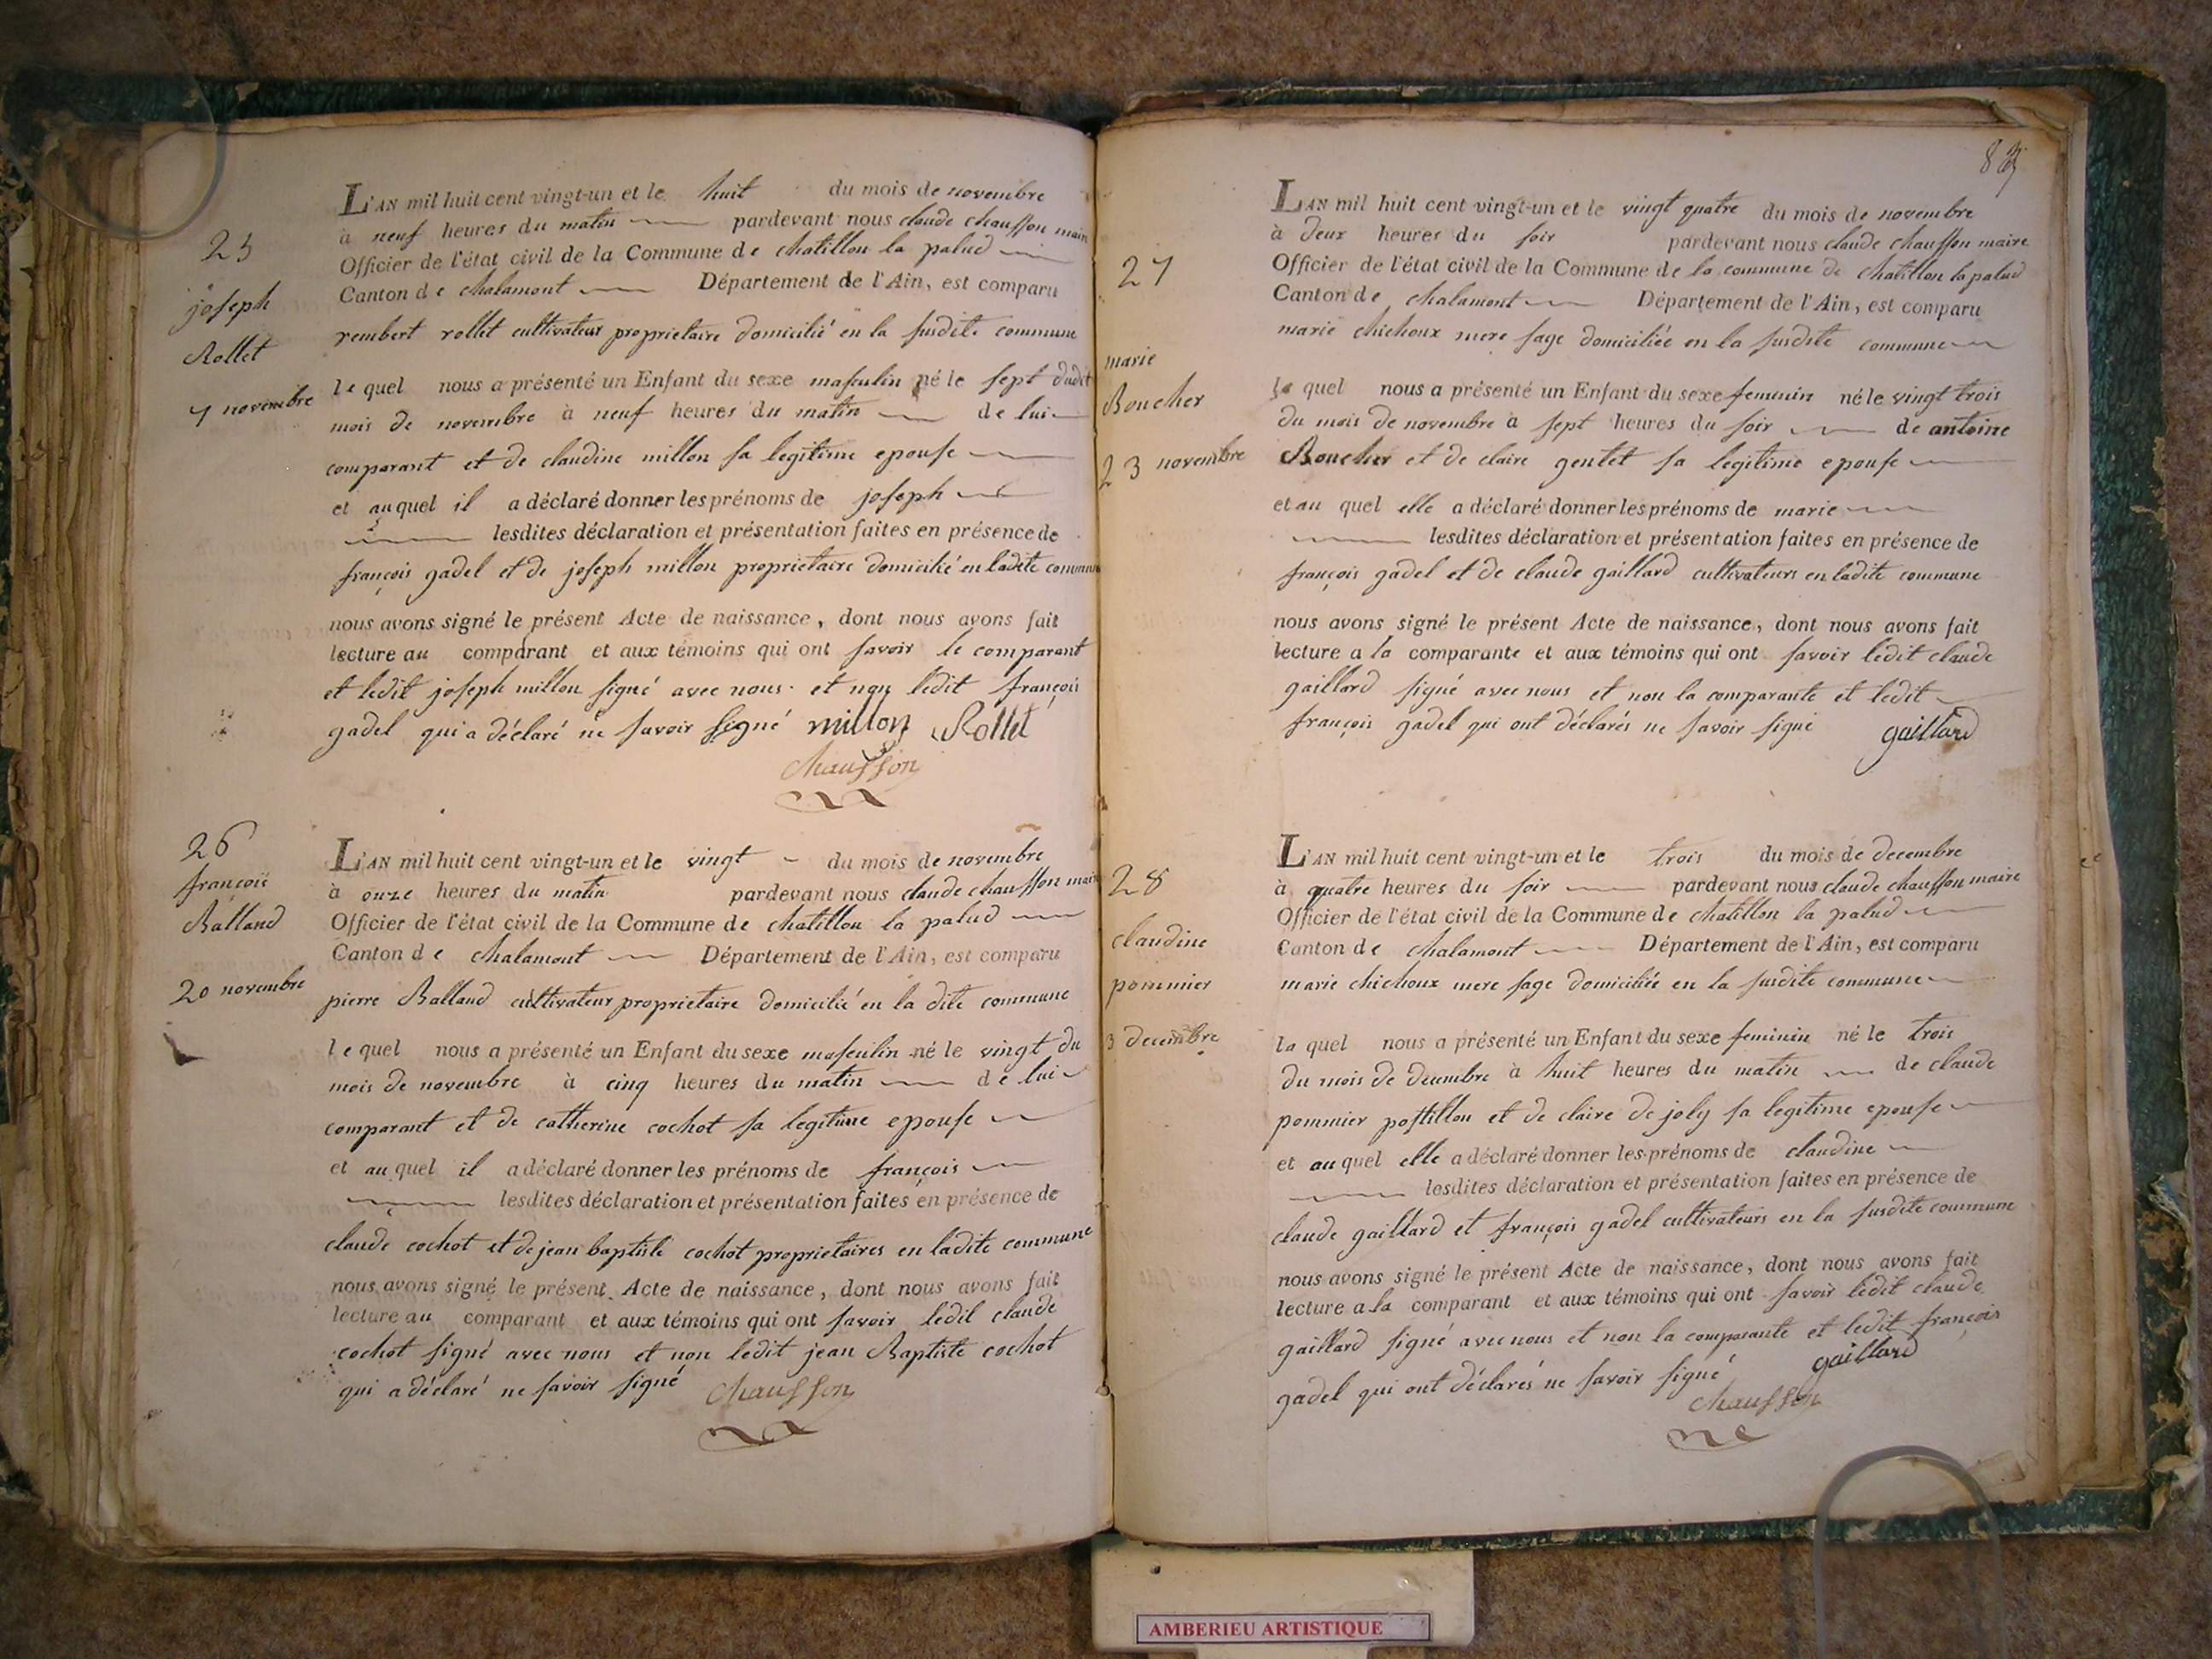 25
joseph
Rollet
7 novembre
L'AN mil huit cent vingt-un et le huit du mois de novembre
à neuf heures du matin pardevant nous claude chausson maire
Officier de l'état civil de la Commune de chatillon la palud
Canton de chalamont Département de l'Ain, est comparu
rembert rollet cultivateur proprietaire domicilié en la susdite commune
le quel nous a présenté un Enfant du sexe masculin né le sept dudit
mois de novembre à neuf heures du matin de lui
comparant et de claudine millon sa legitime epouse
et au quel il a déclaré donner les prénoms de joseph
lesdites déclaration et présentation faites en présence de
françois gadel et de joseph millon proprietaire domicilié en ladite commune
nous avons signé le présent Acte de naissance, dont nous avons fait
lecture au comparant et aux témoins qui ont savoir le comparant
et ledit joseph millon signé avec nous et non ledit françois
gadel qui a déclaré ne savoir signé millon Rollet
chausson
26
françois
Balland
20 novembre
L'AN mil huit cent vingt-un et le vingt du mois de novembre
à onze heures du matin pardevant nous claude chausson maire
Officier de l'état civil de la Commune de chatillon la palud
Canton de chalamont Département de l'Ain, est comparu
pierre Balland cultivateur proprietaire domicilié en la dite commune
le quel nous a présenté un Enfant du sexe masculin né le vingt du
mois de novembre à cinq heures du matin de lui
comparant et de catherine cochot sa legitime epouse
et au quel il a déclaré donner les prénoms de françois
lesdites déclaration et présentation faites en présence de
claude cochot et de jean baptiste cochot proprietaires en ladite commune
nous avons signé le présent Acte de naissance, dont nous avons fait
lecture au comparant et aux témoins qui ont savoir ledit claude
cochot signé avec nous et non ledit jean Baptiste cochot
qui a déclaré ne savoir signé chausson
27
marie
Boucher
23 novembre
L'AN mil huit cent vingt-un et le vingt quatre du mois de novembre
à deux heures du soir pardevant nous claude chausson maire
Officier de l'état civil de la Commune de la commune de chatillon la palud
Canton de chalamont Département de l'Ain, est comparu
marie chichoux mere sage domiciliée en la susdite commune
la quel nous a présenté un Enfant du sexe feminin né le vingt trois
du mois de novembre à sept heures du soir de antoine
Boucher et de claire gentet sa legitime epouse
et au quel elle a déclaré donner les prénoms de marie
lesdites déclaration et présentation faites en présence de
françois gadel et de claude gaillard cultivateurs en ladite commune
nous avons signé le présent Acte de naissance, dont nous avons fait
lecture a la comparante et aux témoins qui ont savoir ledit claude
gaillard signé avec nous et non la comparante et ledit
françois gadel qui ont déclarés ne savoir signé gaillard
28
claudine
pommier
3 decembre
L'AN mil huit cent vingt-un et le trois du mois de decembre
à quatre heures du soir pardevant nous claude chausson maire
Officier de l'état civil de la Commune de chatillon la palud
Canton de chalamont Département de l'Ain, est comparu
marie chichoux mere sage domiciliée en la susdite commune
la quel nous a présenté un Enfant du sexe feminin né le trois
du mois de decembre à huit heures du matin de claude
pommier postillon et de claire de joly sa legitime epouse
et au quel elle a déclaré donner les prénoms de claudine
lesdites déclaration et présentation faites en présence de
claude gaillard et françois gadel cultivateurs en la susdite commune
nous avons signé le présent Acte de naissance, dont nous avons fait
lecture a la comparant et aux témoins qui ont savoir ledit claude
gaillard signé avec nous et non la comparante et ledit françois
gadel qui ont déclarés ne savoir signé gaillard
chausson
AMBERIEU ARTISTIQUE